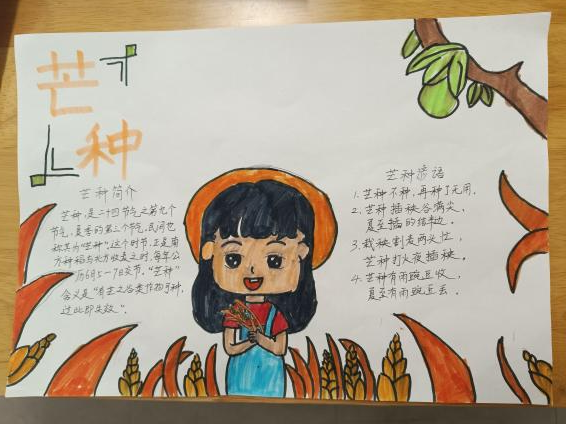 芒
种
芒种简介
芒种，是二十四节气之第九个
节气，夏季的第三个节气，民间也
称其为“忙种”，这个时节，正是南
方种稻与北方收麦之时，每年公
历6月5—7日交节，“芒种”
含义是“有芒之谷类作物可种，
过此即失效”。
芒种谚语
1. 芒种不种，再种了无用，
2. 芒种插秧谷满尖，
夏至插的结半边。
3. 栽秧割麦两头忙，
芒种打火夜插秧。
4. 芒种有雨豌豆收，
夏至有雨豌豆丢。